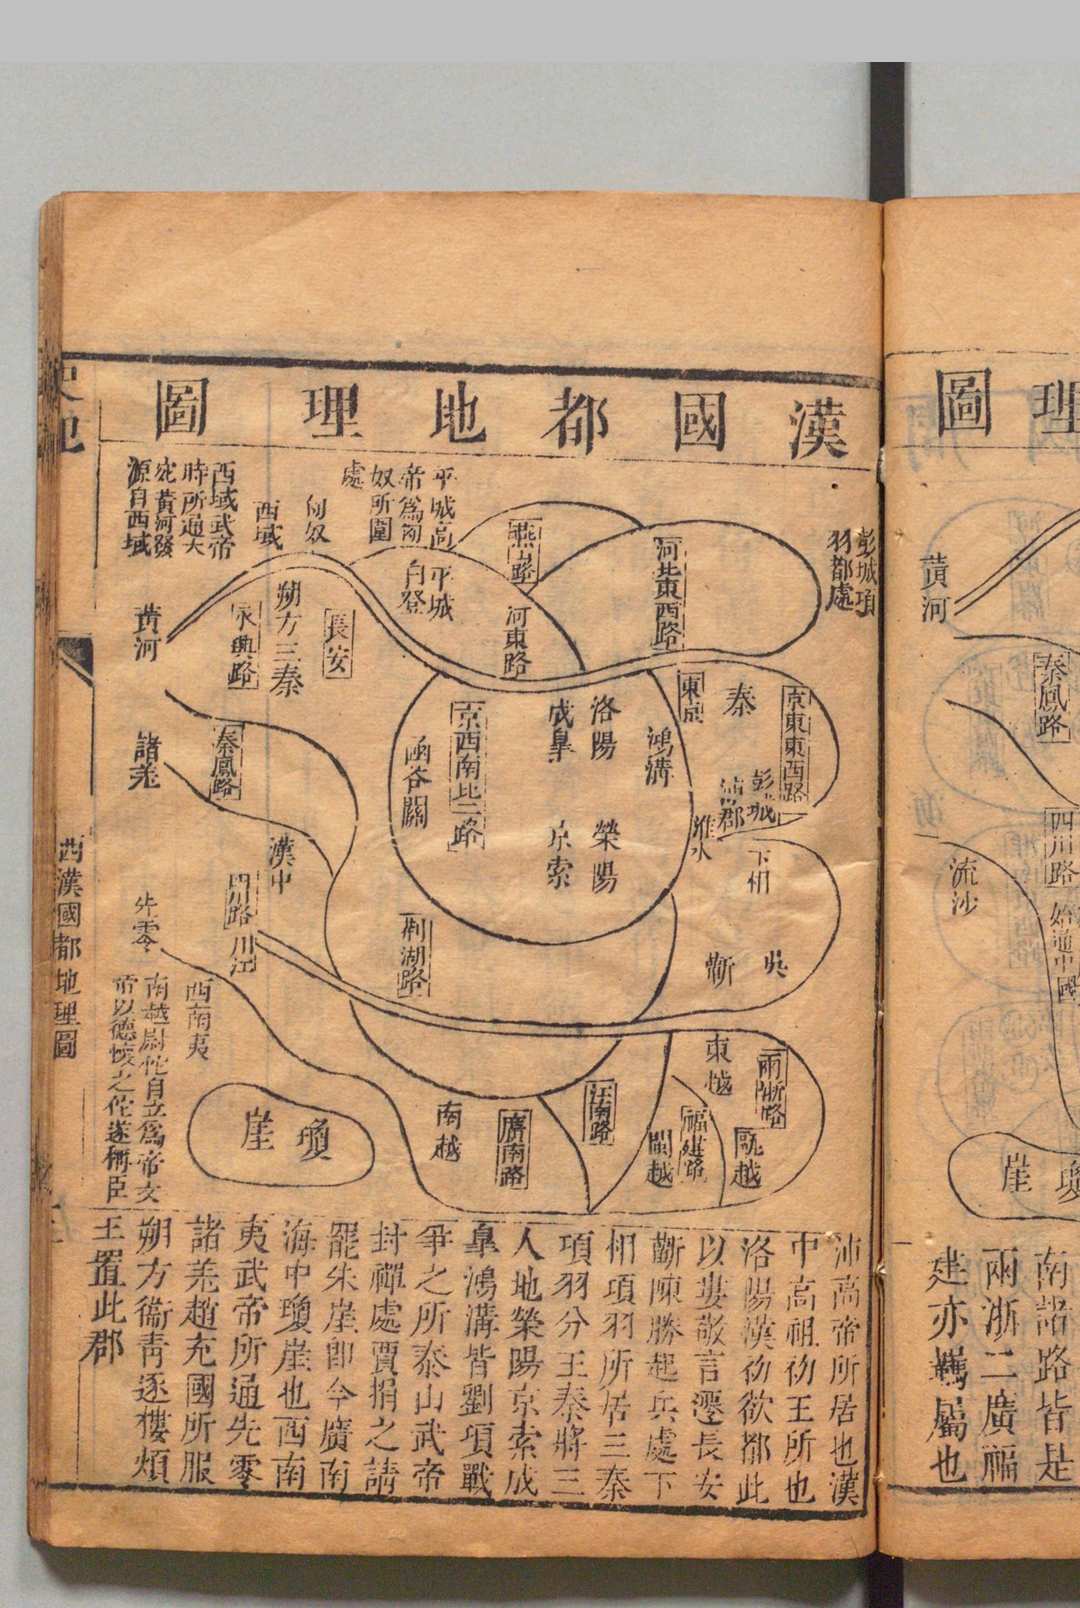 漢國都地理圖
彭城項
羽都處
河北東西路
燕山路
河東路
平城高
帝為匈
奴所圍
處
平城
白登
匈奴
西域
西域武帝
時所通大
宛黃河發
源自西域
黃河
朔方三秦
永興路
長安
諸羌
秦鳳路
漢中
京西南北二路
函谷關
洛陽
成皋
滎陽
京索
鴻溝
泰
京東東西路
彭城
沛郡
睢水
下相
蘄
吳
荆湖路
四川路
川江
先零
西南夷
南越尉佗自立為帝文
帝以德懷之佗遂稱臣
瓊崖
南越
廣南路
江南路
東越
兩浙路
福建路
閩越
甌越
沛高帝所居也漢
中高祖初王所也
洛陽漢初欲都此
以婁敬言遷長安
蘄陳勝起兵處下
相項羽所居三秦
項羽分王秦將三
人地滎陽京索成
皋鴻溝皆劉項戰
爭之所泰山武帝
封禪處賈捐之請
罷朱崖即今廣南
海中瓊崖也西南
夷武帝所通先零
諸羌趙充國所服
朔方衞青逐樓煩
王置此郡
西漢國都地理圖
理圖
黃河
秦鳳路
四川路
始通中國
流沙
瓊崖
南諸路皆是
兩浙二廣福
建亦羈屬也